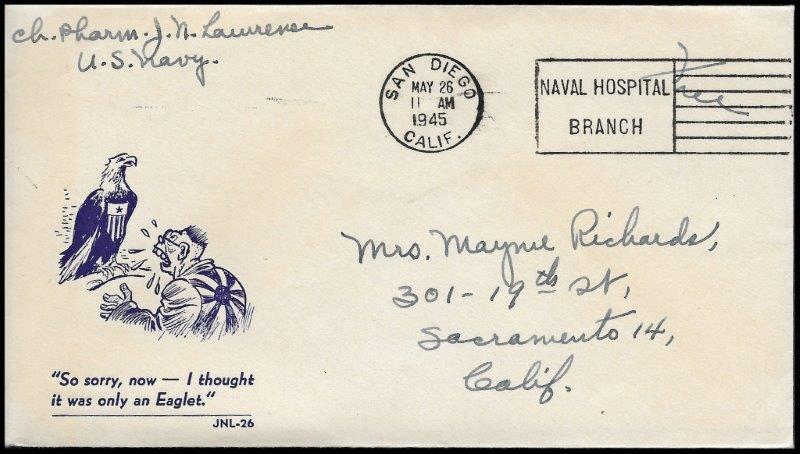 Ch. Pharm. J. N. Lawrence
U.S. Navy.
SAN DIEGO
MAY 26
11 AM
1945
CALIF.
NAVAL HOSPITAL
BRANCH
Free
Mrs. Mayme Richards,
301-19th St,
Sacramento 14,
Calif.
"So sorry, now — I thought
it was only an Eaglet."
JNL-26